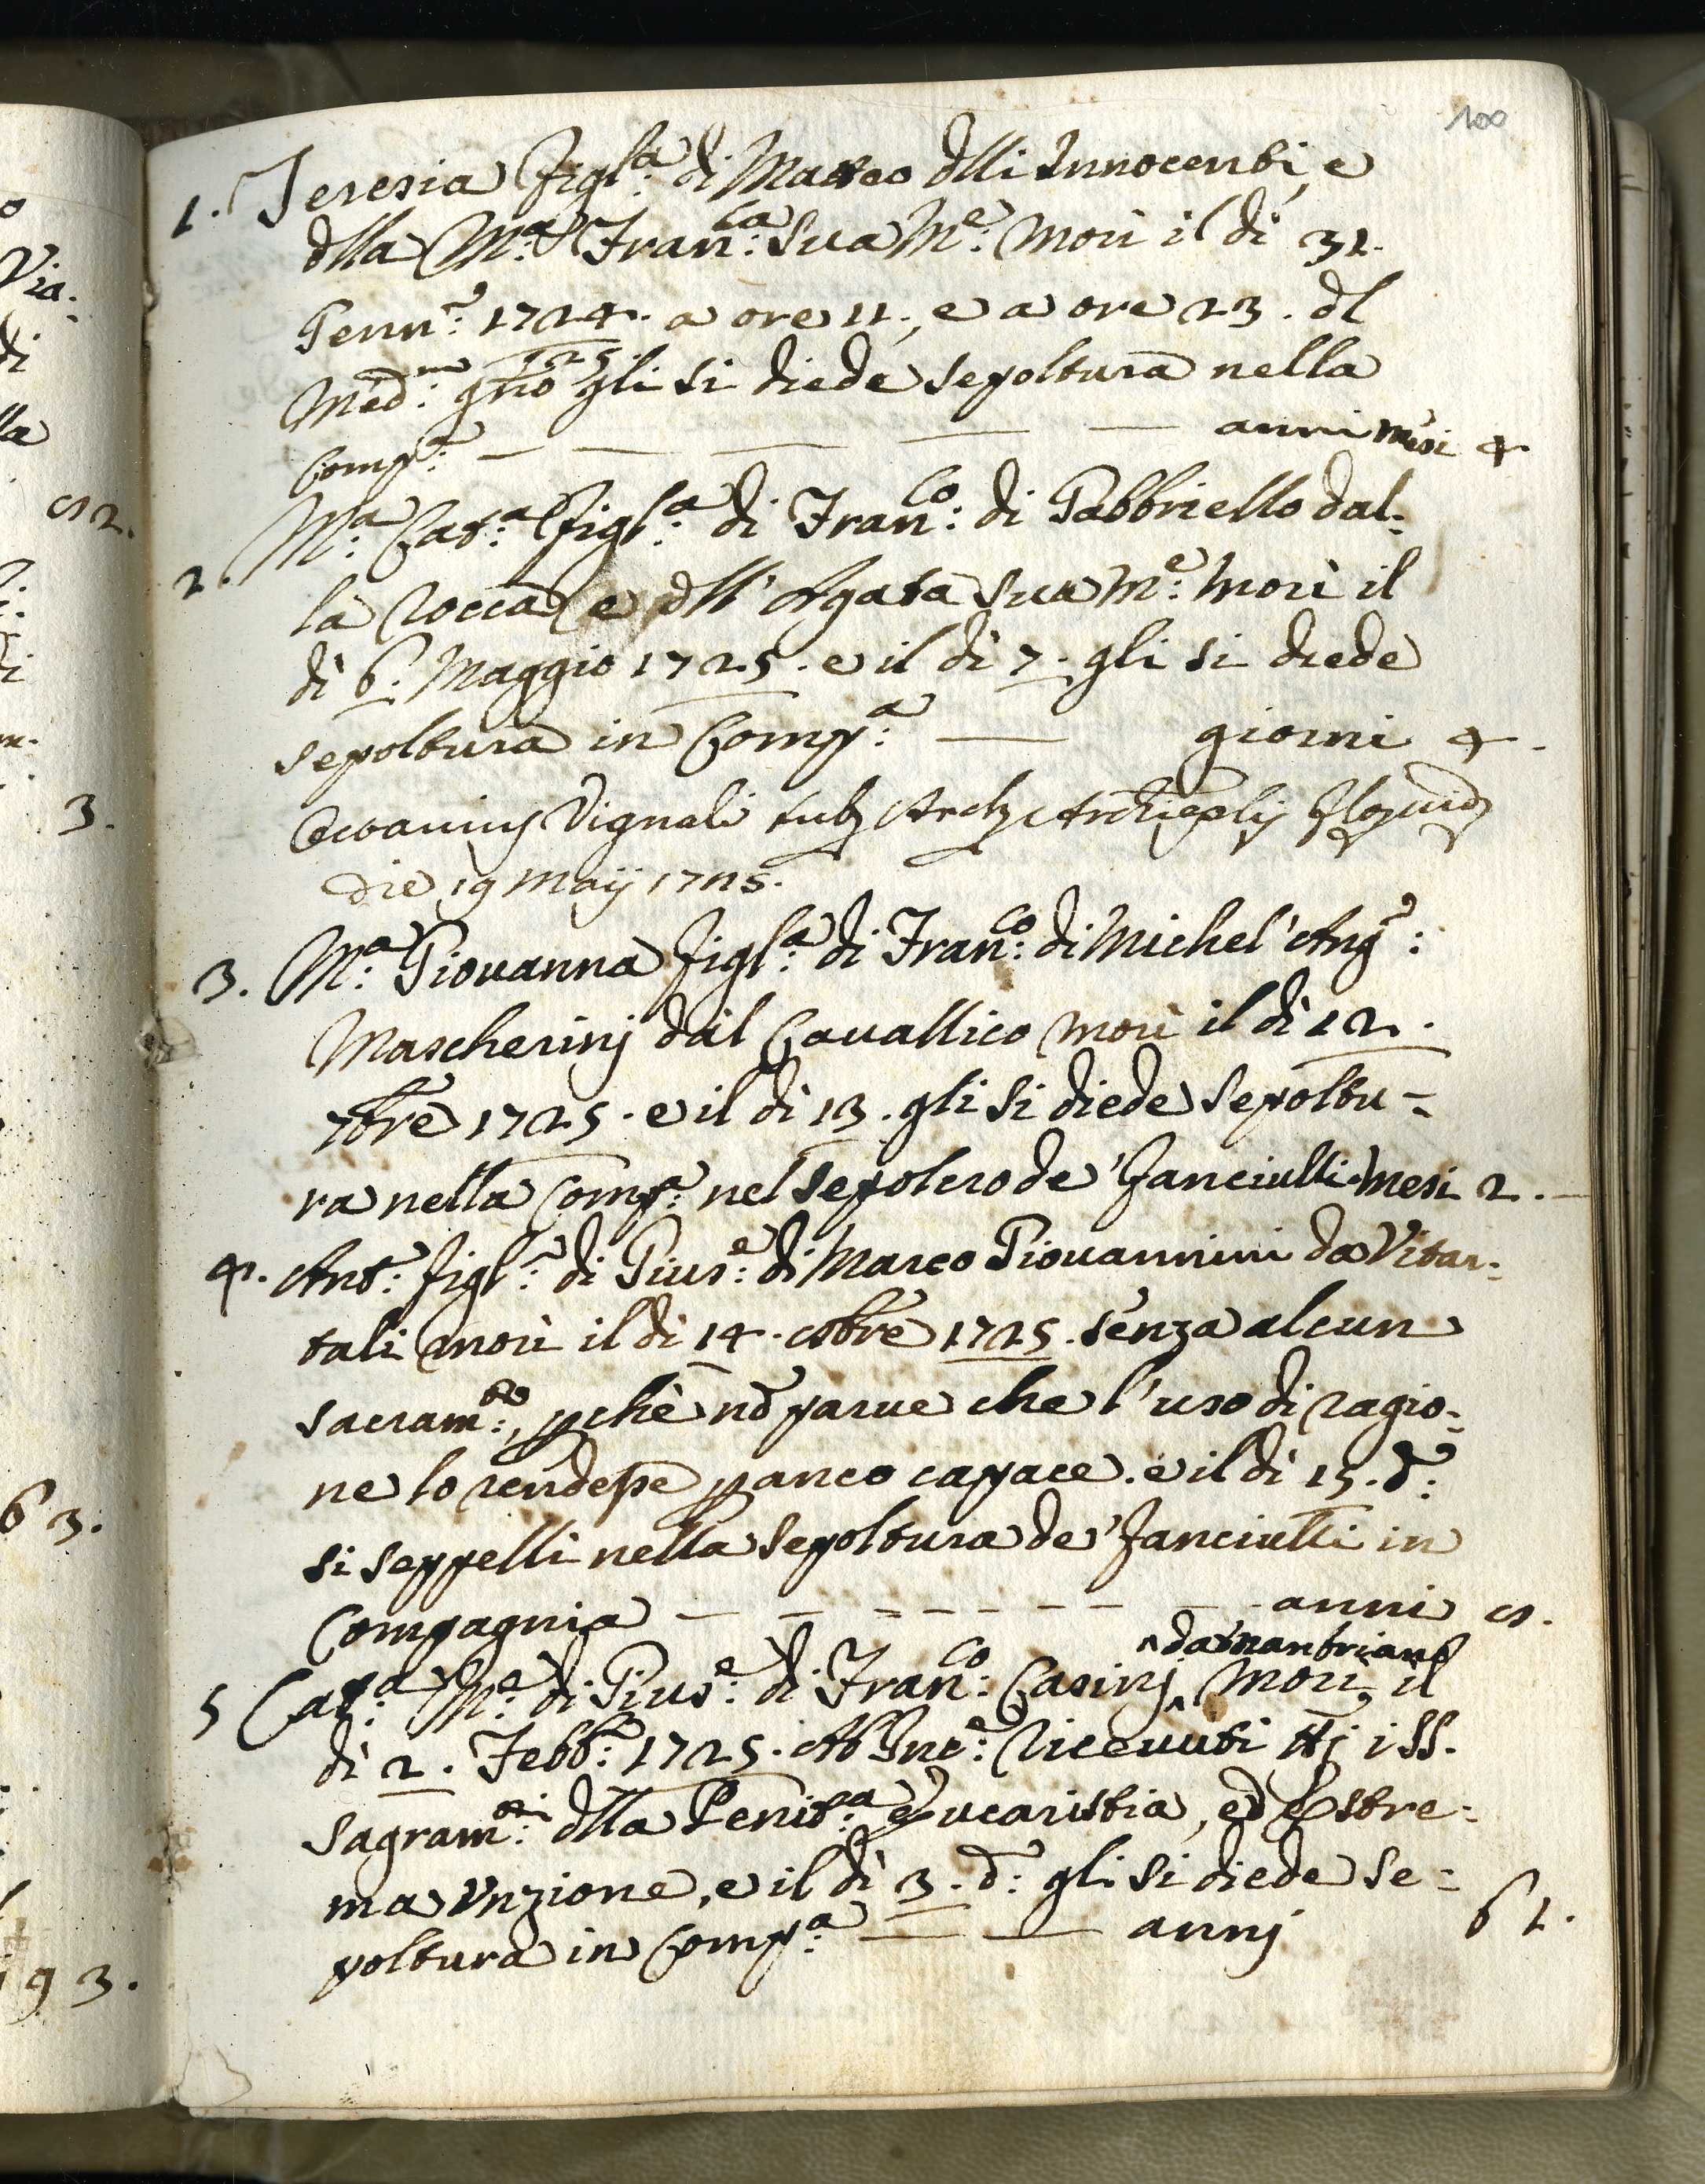 100
1. Teresia figl:ª di Matteo dlli Innocenti, e
dlla M:ª Fran:ca sua M:e morì il dì 31.
Genn:º 1724. a ore 11., e a ore 23. dl
1725
Med:mo gno gli si diede sepoltura nella
Comp:ª — — — — anni mesi 4
2. M:ª Cat:ª figl:ª di Fran:co di Gabbriello dal:
la Rocca e dll' Agata sua M:e morì il
dì 6. Maggio 1725. e il dì 7. gli si diede
sepoltura in Comp:ª — giorni 4.
Vignali
die 19 Maij 1725.
3. M:ª Giovanna figl:ª di Fran:co di Michel'Ang:º
Mascherinj dal Cavallico morì il dì 12.
7bre 1725. e il dì 13. gli si diede sepoltu=
ra nella Comp:ª nel sepolcro de' fanciulli. mesi 2. —
4. Ant:º figl:º di Gius:e di Marco Giovannini da Vitar:
tali morì il dì 14. 9bre 1725. senza alcun
sacram:to, pchè nõ parve che l'uso di ragio:
ne lo rendesse panco capace. e il dì 15. d:º
si seppellì nella sepoltura de' fanciulli in
Compagnia — — — — — — anni 9.
^ da Nantriano
5 Cat:ª M:e di Gius:e di Fran:co Casinj ^ morì il
dì 2. Febb:º 1725. Ab Inc:e Ricevuti tti i SS.
Sagram:ti dlla Penit:ª Eucaristia, ed Estre:
ma Unzione, e il dì 3. d:º gli si diede se:
poltura in Comp:ª — — annj 61.